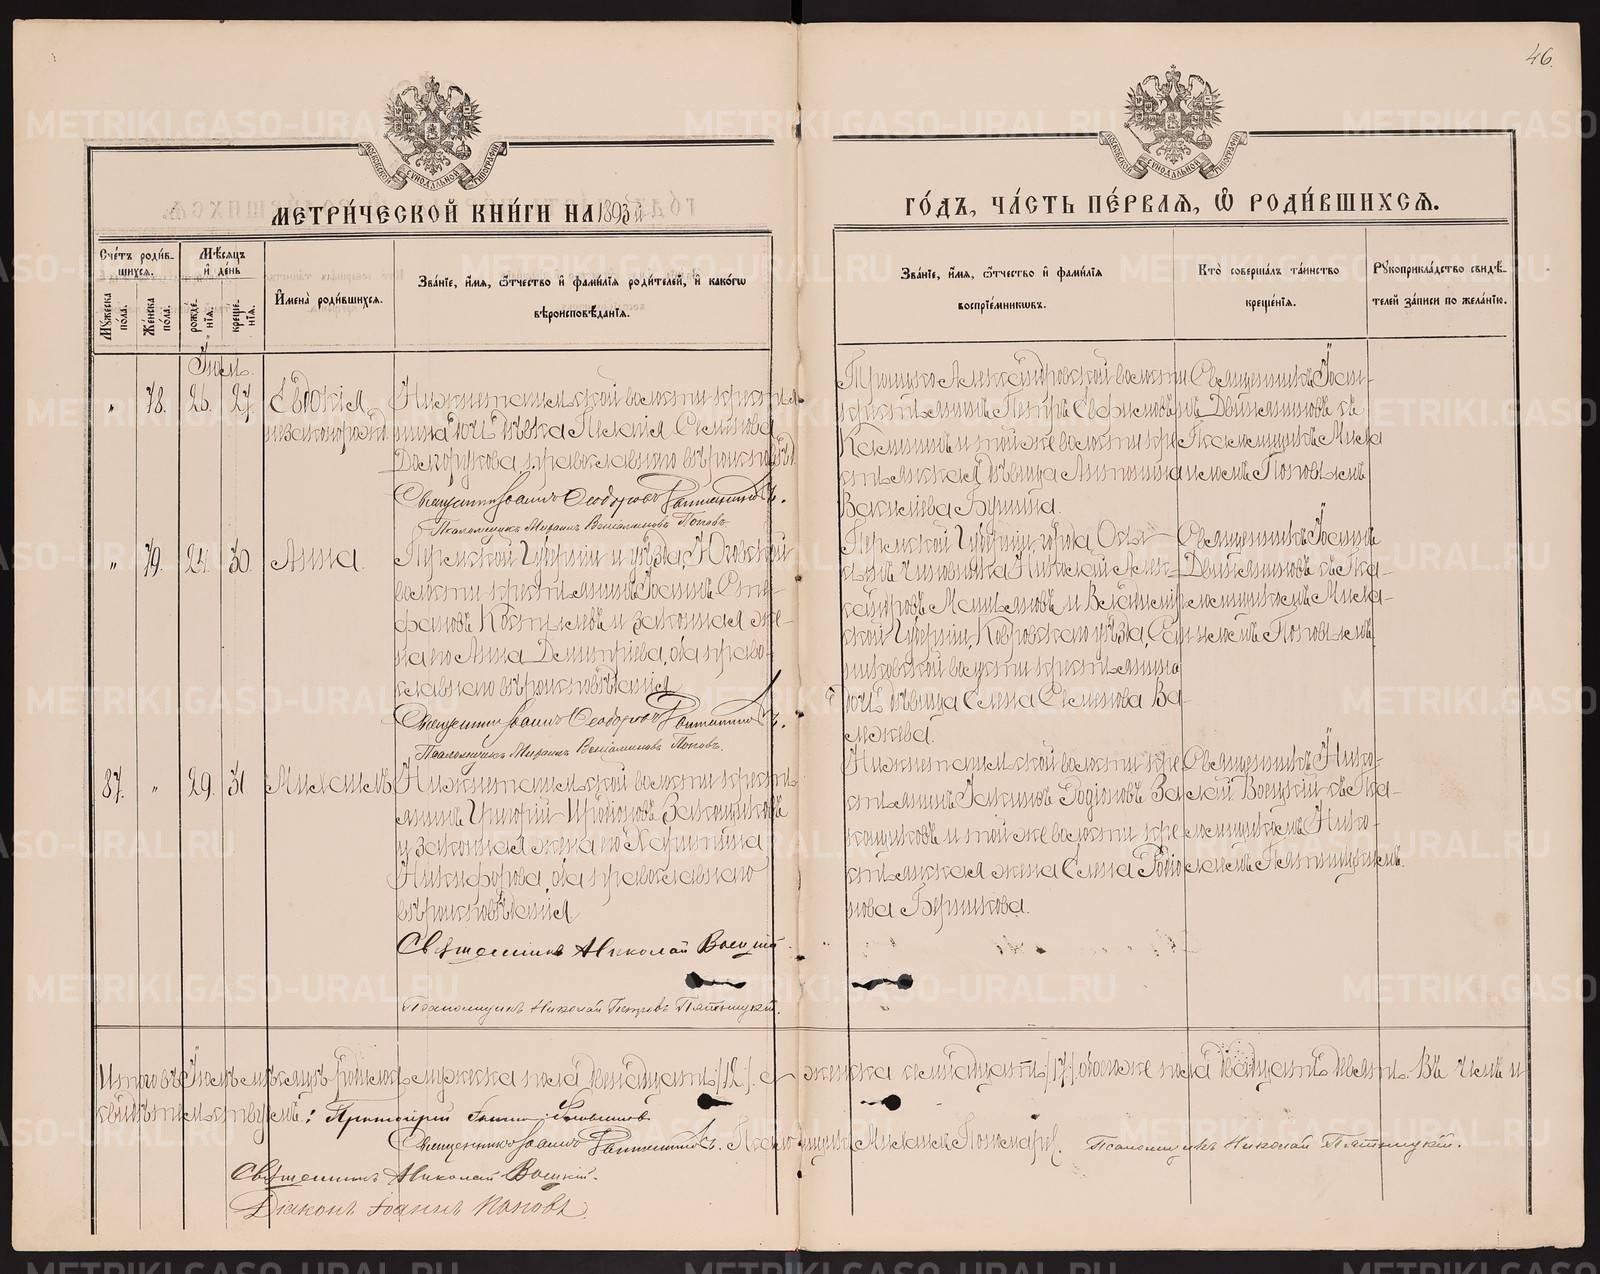 46.
МЕТРИ́ЧЕСКОЙ КНИ́ГИ НА 1893 й
ГО́ДЪ, ЧА́СТЬ ПЕ́РВАЯ, Ѡ РОДИ́ВШИХСЯ.
Сче́тъ роди́вшихся.
Мѣ́сяцъ и де́нь
Му́жеска по́ла.
Же́нска по́ла.
рожде́нїя.
креще́нїя.
И́мена роди́вшихся.
Зва́нїе, и́мя, ѻ҆́тчество и фами́лїя роди́телей, и како́гѡ вѣроисповѣ́данїя.
Зва́нїе, и́мя, ѻ҆́тчество и фами́лїя воспрїе́мниковъ.
Кто̀ соверша́лъ та́инство креще́нїя.
Рукоприкла́дство свидѣ́телей за́писи по жела́нїю.
Іюль.
" 78. 26. 27. Евдокія
незаконорожд.
Нижнетагильской волости крестья-
нина дочь дѣвка Пелагія Семенова
Долгорукова, православнаго вѣроисповѣд.
Священникъ Іоаннъ Ѳеодоровъ
Псаломщикъ Михаилъ Веніаминовъ Поповъ.
Троицко Александровской волости
крестьянинъ Петръ
и той же волости кре-
стьянская дѣвица Антонина
Васильева Бушина.
Священникъ Іоан-
нъ Двиняниновъ съ
Псаломщикъ Миха
иломъ Поповымъ
" 79. 24. 30. Анна.
Пермской Губерніи и уѣзда, Юговской
волости крестьянинъ Іоаннъ Сте-
фановъ Костылевъ и законная же-
на его Анна Димитріева, оба право-
славнаго вѣроисповѣданія
Священникъ Іоаннъ Ѳеодоровъ
Псаломщикъ Михаилъ Веніаминовъ Поповъ.
Пермской Губерніи, города Осы
сынъ чиновника Николай Алек-
сандровъ и Владимір-
ской Губерніи, Ковровскаго уѣзда, Сан-
никовской волости крестьянина
дочь дѣвица Елена Семенова
Священникъ Іоаннъ
Двиняниновъ съ Пса-
ломщикомъ Миха-
иломъ Поповымъ
87. " 29. 31 Михаилъ
Нижнетагильской волости кресть-
янинъ Григорій Иродіоновъ
и законная жена его Харитина
Никифорова, оба православнаго
вѣроисповѣданія
Священникъ Николай Воецкій.
Псаломщикъ Николай Петровъ Пятницкій.
Нижнетагильской волости кре-
стьянинъ Родіоновъ
и той же волости кре-
стьянская жена Елена Родіо-
нова Бердникова.
Священникъ Нико-
лай Воецкій съ Пса-
ломщикомъ Нико-
лаемъ Пятницкимъ.
Итого въ Іюлѣ мѣсяцѣ родилось мужеска пола двенадцать /12/. а женска семнадцать /17/. обоего же пола двадцать девять. Въ чемъ и
свидѣтельствуемъ: Протоіерей
Священникъ Іоаннъ Псаломщикъ Михаилъ Псаломщикъ Николай Пятницкій.
Священникъ Николай Воецкій.
Діаконъ Іоаннъ Поповъ.
METRIKI.GASO-URAL.RU